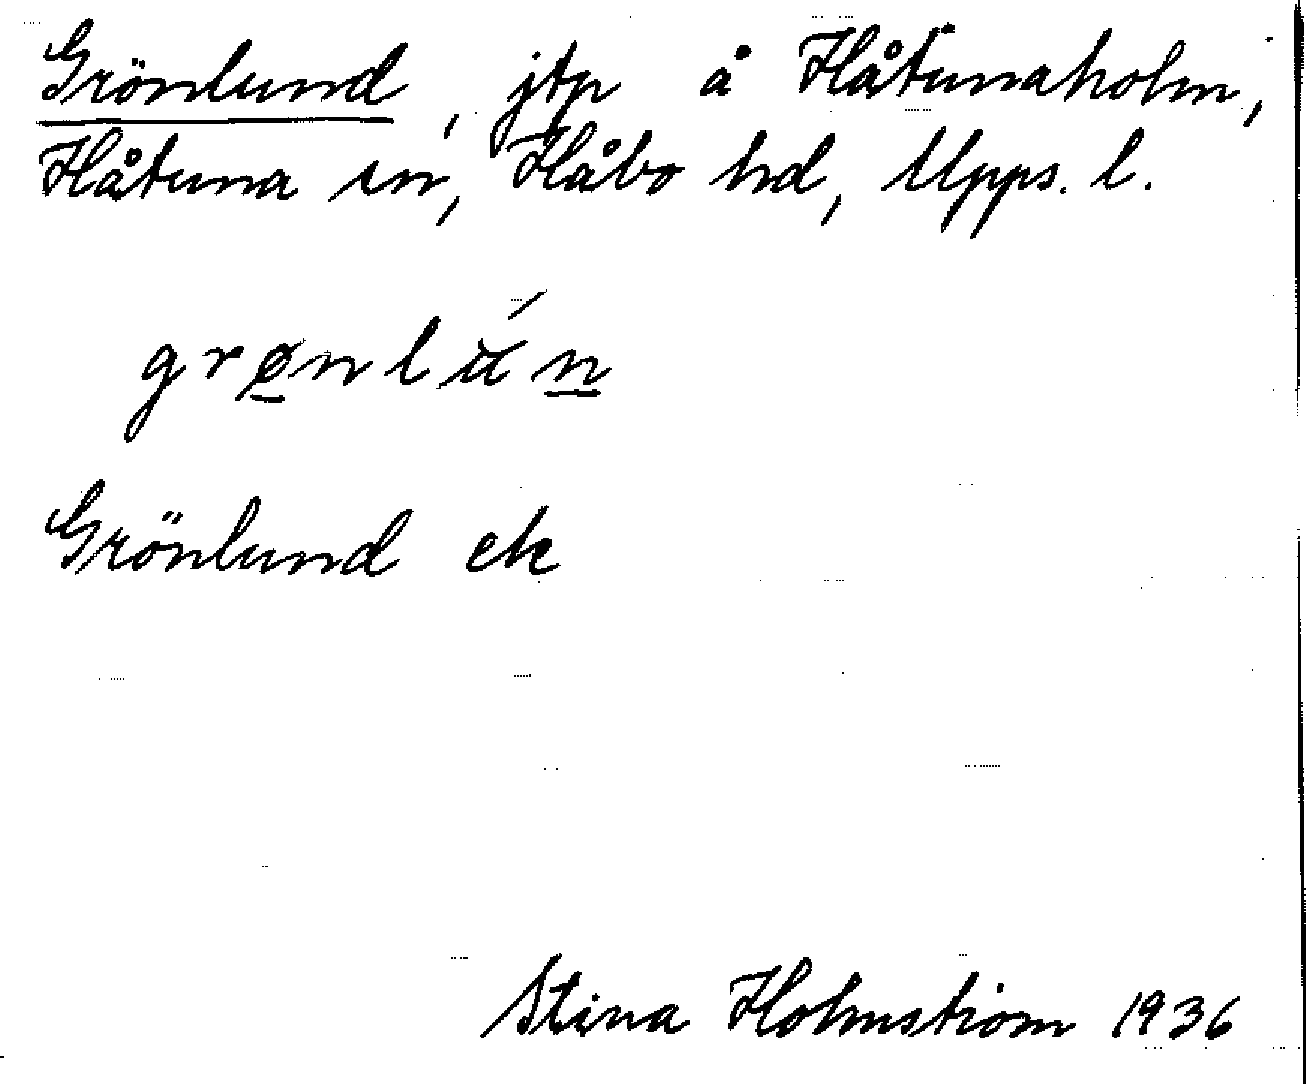 Grönlund, jtp å Håtunaholm,
Håtuna sn, Håbo hd, Upps. l.
grø̱nlú̆n̲
Grönlund ek
Stina Holmström 1936